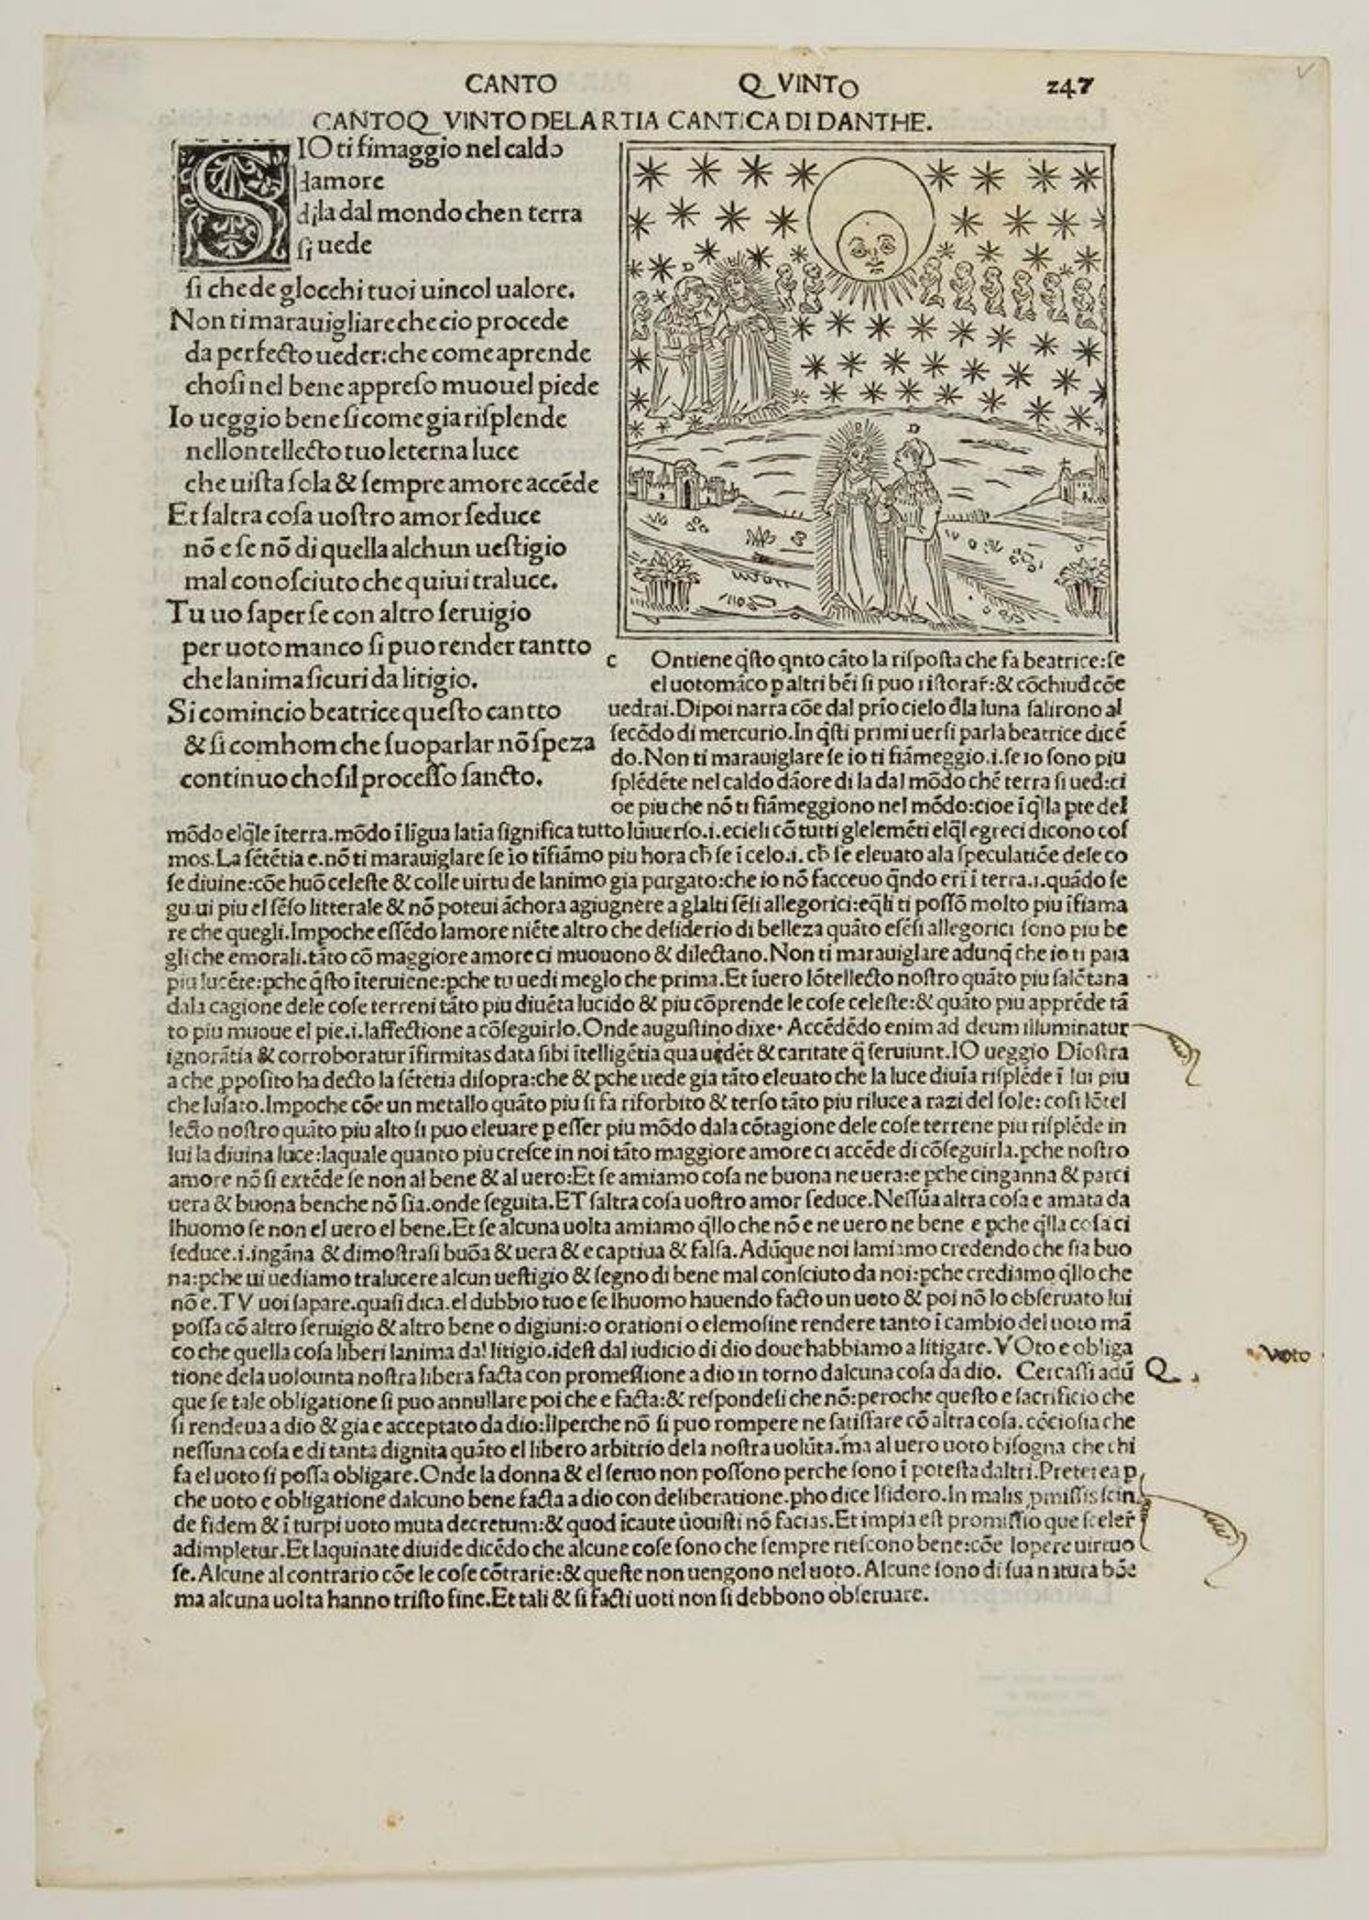 CANTO Q VINTO 247
CANTO Q VINTO DE LA RTIA CANTICA DI DANTHE.
SIO ti fimaggio nel caldo
damore
dila dal mondo chen terra
si uede
si che de glocchi tuoi uincol ualore.
Non ti marauigliare che cio procede
da perfecto ueder: che come aprende
chosi nel bene appreso muouel piede
Io ueggio bene si come gia risplende
nellontellecto tuo leterna luce
che uista sola & sempre amore accēde
Et saltra cosa uostro amor seduce
nō e se nō di quella alchun uestigio
mal conosciuto che quiui traluce.
Tu uo saper se con altro seruigio
per uoto manco si puo render tantto
che lanima sicuri da litigio.
Si comincio beatrice questo cantto
& si com hom che suo parlar nō speza
continuo chosil processo sancto.
B D
B D
c Ontiene q̄sto q̄nto cāto la risposta che fa beatrice: se
el uoto māco p altri bēi si puo ristorar̄: & cōchiud cōe
uedrai. Dipoi narra cōe dal prīo cielo dla luna salirono al
secōdo di mercurio. In q̄sti primi uersi parla beatrice dicē
do. Non ti marauiglare se io ti fiāmeggio .i. se io sono piu
splēdēte nel caldo dāore di la dal mōdo chē terra si ued: ci
oe piu che nō ti fiāmeggiono nel mōdo: cioe ī q̄lla pte del
mōdo elq̄le īterra. mōdo ī līgua latīa significa tutto lūiuerso .i. e cieli cō tutti glelemēti elq̄l e greci dicono cos
mos. La sētētia e. nō ti marauiglare se io tīfiāmo piu hora ch̄ se ī celo .i. ch̄ se eleuato ala speculatiōe dele co
se diuine: cōe huō celeste & colle uirtu de lanimo gia purgato: che io nō faceuo q̄ndo eri ī terra .i. quādo se
gu ui piu el sēso litterale & nō poteui āchora agiugnere a glalti sēsi allegorici: eq̄li ti possō molto piu īfiama
re che quegli. Impoche essēdo lamore niēte altro che desiderio di bellezza quāto e sēsi allegorici sono piu be
gli che emorali. tāto cō maggiore amore ci muouono & dilectano. Non ti marauiglare adunq̄ che io ti paia
piu lucēte: pche q̄sto īteruiene: pche tu uedi meglo che prima. Et īuero lōtellecto nostro quāto piu salētana
dala cagione dele cose terreni tāto piu diuēta lucido & piu cōprende le cose celeste: & quāto piu apprēde tā
to piu muoue el pie .i. laffectione a cōseguirlo. Onde augustino dixe. Accēdēdo enim ad deum illuminatur
ignorātia & corroboratur īfirmitas data sibi ītelligētia qua uidēt & caritate q̄ seruiunt. IO ueggio Dīostra
a che pposito ha decto la sētētia disopra: che & pche uede gia tāto eleuato che la luce diuīa risplēde ī lui piu
che lusato. Impoche cōe un metallo quāto piu si fa riforbito & terso tāto piu riluce a razi del sole: cosi lōtel
lecto nostro quāto piu alto si puo eleuare p esser piu mōdo dala cōtagione dele cose terrene piu risplēde in
lui la diuina luce: laquale quanto piu cresce in noi tāto maggiore amore ci accēde di cōseguirla. pche nostro
amore nō si extēde se non al bene & al uero: Et se amiamo cosa ne buona ne uera: e pche cinganna & parci
uera & buona benche nō sia. onde seguita. ET saltra cosa uostro amor seduce. Nessūa altra cosa e amata da
lhuomo se non el uero el bene. Et se alcuna uolta amiamo q̄llo che nō e ne uero ne bene e pche q̄lla cosa ci
seduce .i. ingāna & dimostrasi buōa & uera & e captiua & falsa. Adūque noi lamiamo credendo che sia buo
na: pche ui uediamo tralucere alcun uestigio & segno di bene mal consciuto da noi: pche crediamo q̄llo che
nō e. TV uoi sapare. quasi dica. el dubbio tuo e se lhuomo hauendo facto un uoto & poi nō lo obseruato lui
possa cō altro seruigio & altro bene o digiuni: o orationi o elemosine rendere tanto ī cambio del uoto mā
co che quella cosa liberi lanima dal litigio. idest dal iudicio di dio doue habbiamo a litigare. VOto e obliga
tione dela uolounta nostra libera facta con promessione a dio in torno dalcuna cosa da dio. Cercassi adū
que se tale obligatione si puo annullare poi che e facta: & respondesi che nō: peroche questo e sacrificio che
si rendeua a dio & gia e acceptato da dio: Ilperche nō si puo rompere ne satissare cō altra cosa. cōciosia che
nessuna cosa e di tanta dignita quāto el libero arbitrio dela nostra uolūta. ma al uero uoto bisogna che chi
fa el uoto si possa obligare. Onde la donna & el seruo non possono perche sono ī potesta daltri. Preterea p
che uoto e obligatione dalcuno bene facta a dio con deliberatione. pho dice Isidoro. In malis pmissis scin
de fidem & ī turpi uoto muta decretum: & quod īcaute ūouisti nō facias. Et impia est promissio que sceler̄
adimpletur. Et laquinate diuide dicēdo che alcune cose sono che sempre riescono bene: cōe lopere uirtuo
se. Alcune al contrario cōe le cose cōtrarie: & queste non uengono nel uoto. Alcune sono di sua natura bōe
ma alcuna uolta hanno tristo fine. Et tali & si facti uoti non si debbono obseruare.
Voto
Q.